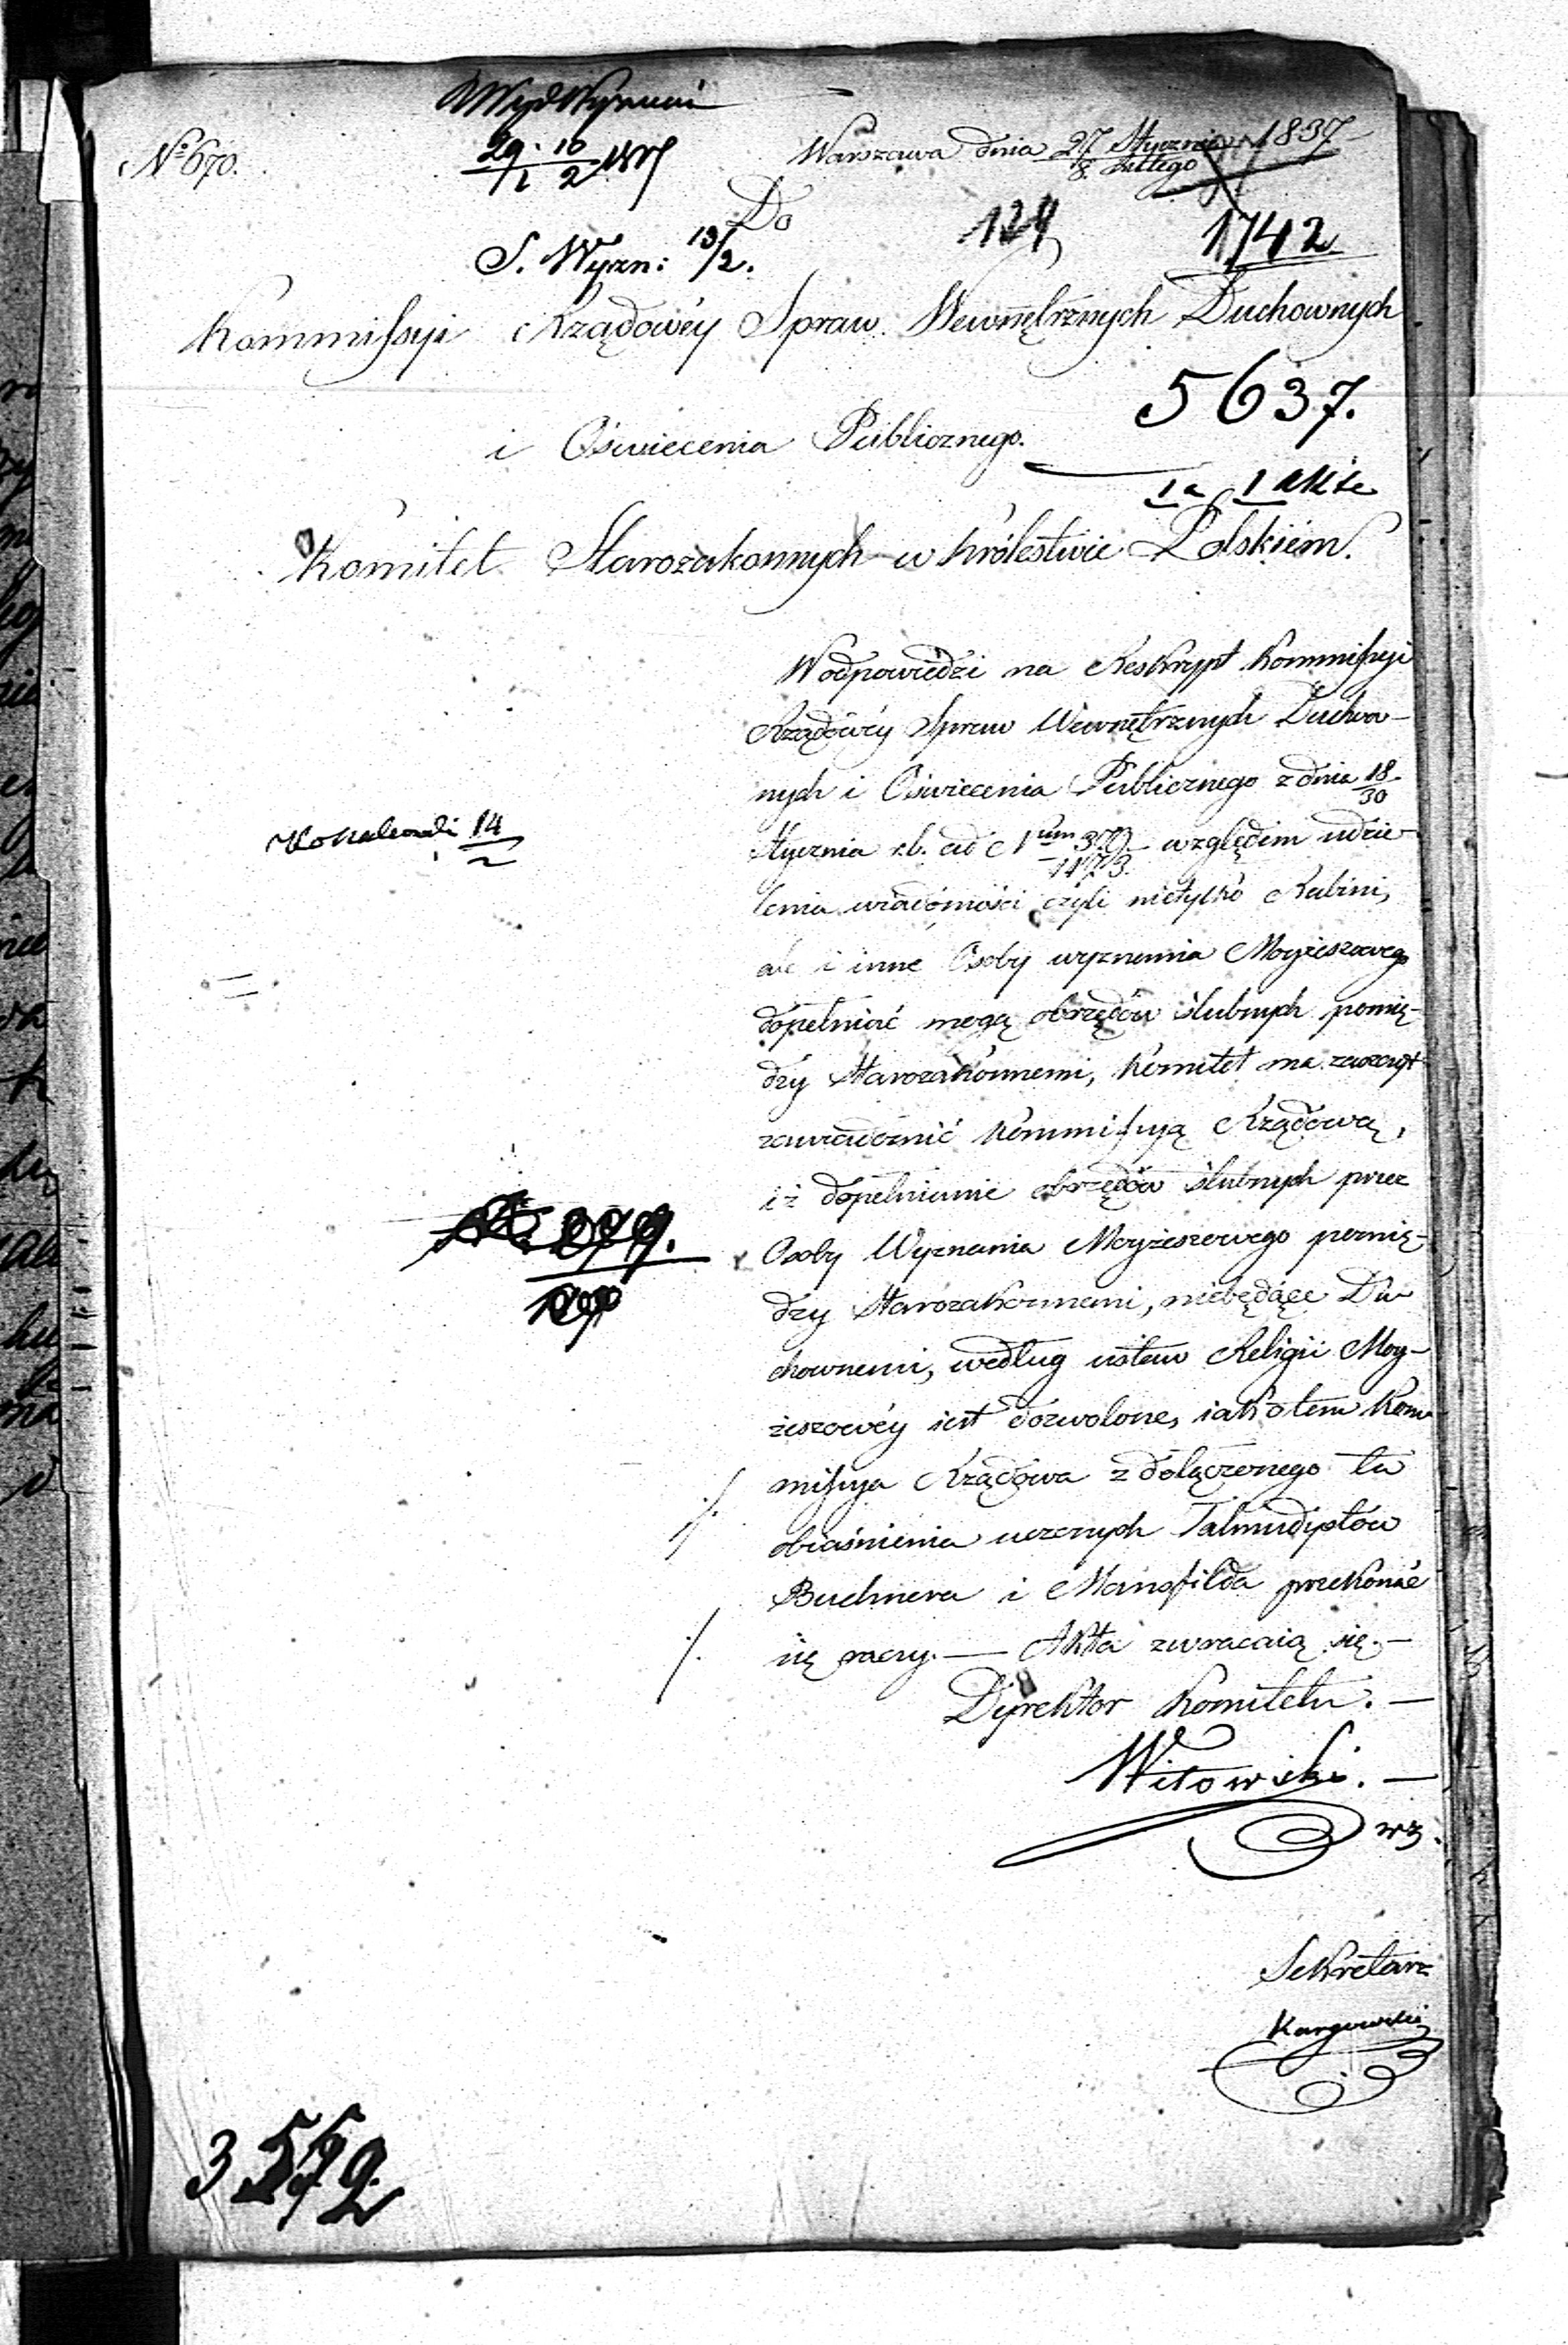 No 670.
29/1 10/2 1837
Warszawa dnia 27 Stycznia / 8 Lutego 1837
Do
S. Wyzn: 13/2.
1742
Kommissyi Rządowéy Spraw Wewnętrznych Duchownych
5637.
i Oświecenia Publicznego.
Komitet Starozakonnych w Królestwie Polskiém.
W odpowiedzi na Reskrypt Kommissyi
Rządowéy Spraw Wewnętrznych Duchow-
nych i Oświecenia Publicznego z dnia 18/30
14/2
Stycznia r.b. ad Num względem udzie-
lenia wiadomości czyli nietylko Rabini,
ale i inne Osoby wyznania Moyżeszowego
dopełniać mogą obrzędów ślubnych pomię-
dzy Starozakonnemi, Komitet ma zaszczyt
zawiadomić Kommissyią Rządową,
iż dopełnianie obrzędów ślubnych przez
Osoby Wyznania Moyżeszowego pomię-
dzy Starozakonnemi, niebędące Du-
chownemi, według ustaw Religii Moy-
żeszowéy iest dozwolone, iak o tem Kom-
missya Rządowa z dołączonego tu
obiaśnienia uczonych Talmudystów
Buchnera i Mansfilda przekonać
się raczy. — Akta zwracaią się. —
Dyrektor Komitetu. —
Witowski. —
wz.
Sekretarz